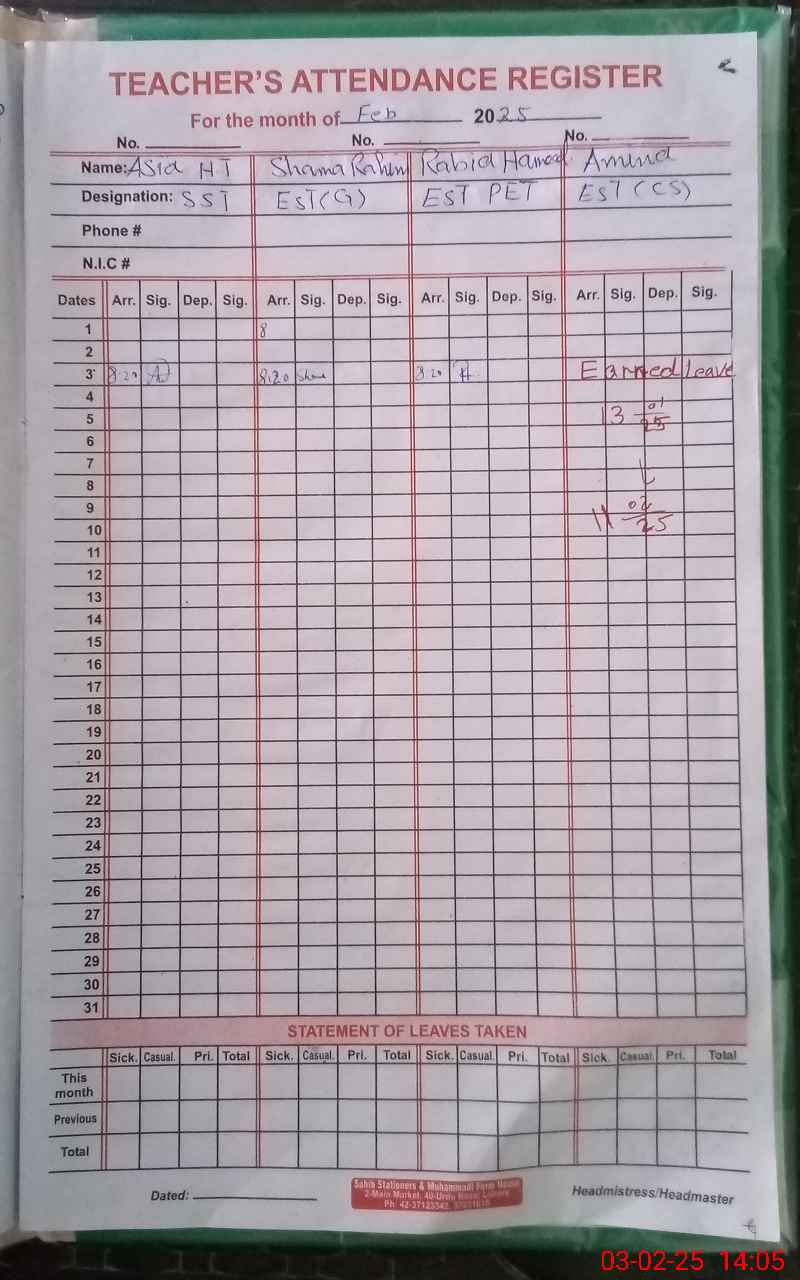 TEACHER'S ATTENDANCE REGISTER
For the month of Feb 2025
No. No. No.
Name: Asia HT Shama Rahim Rabia Hameed Amina
Designation: SST EST(G) EST PET EST (CS)
Phone #
N.I.C #
Dates Arr. Sig. Dep. Sig. Arr. Sig. Dep. Sig. Arr. Sig. Dep. Sig. Arr. Sig. Dep. Sig.
1 8
2
3 8:20 8:20 Sham 8:20 Earned Leave
4
5 13 01/25
6
7
8
9
10 11 02/25
11
12
13
14
15
16
17
18
19
20
21
22
23
24
25
26
27
28
29
30
31
STATEMENT OF LEAVES TAKEN
Sick. Casual. Pri. Total Sick. Casual. Pri. Total Sick. Casual. Pri. Total Sick. Casual. Pri. Total
This month
Previous
Total
Dated: Headmistress/Headmaster
Sahib Stationers & Muhammadi Form House
2-Main Market, 40-Urdu Bazar Lahore
03-02-25 14:05